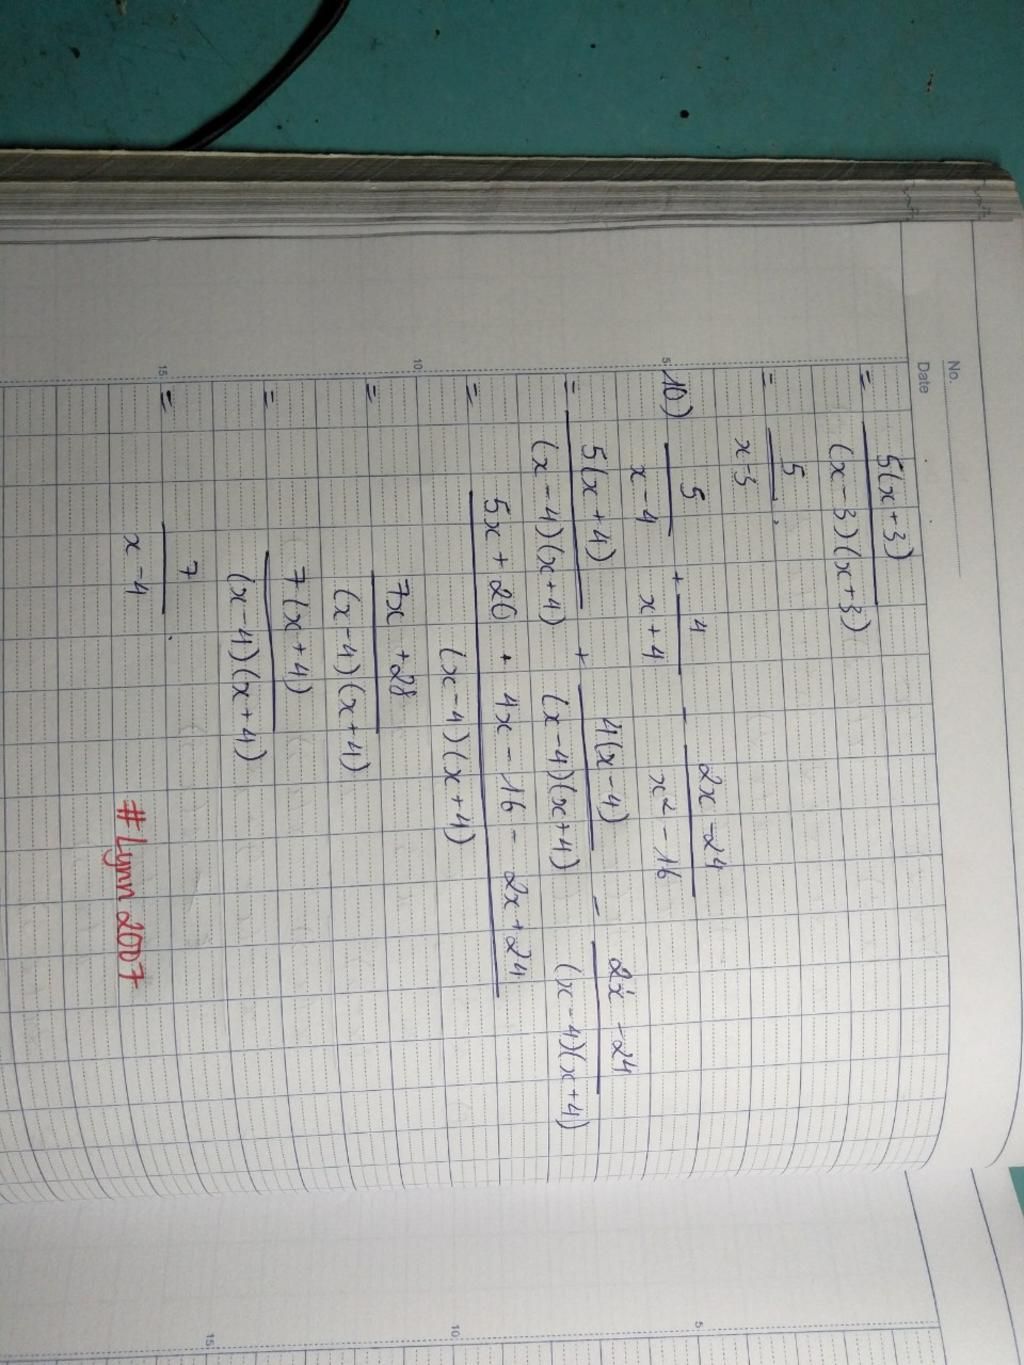 No.
Date
= 5(x+3) / (x-3)(x+3)
= 5 / x-3 .
10) 5 / x-4 + 4 / x+4 - 2x-24 / x² - 16
= 5(x+4) / (x-4)(x+4) + 4(x-4) / (x-4)(x+4) - 2x-24 / (x-4)(x+4)
= 5x + 20 + 4x - 16 - 2x+24 / (x-4)(x+4)
= 7x + 28 / (x-4)(x+4)
= 7(x+4) / (x-4)(x+4)
= 7 / x-4 .
#Lynn2007
5
10
15
5
10
15